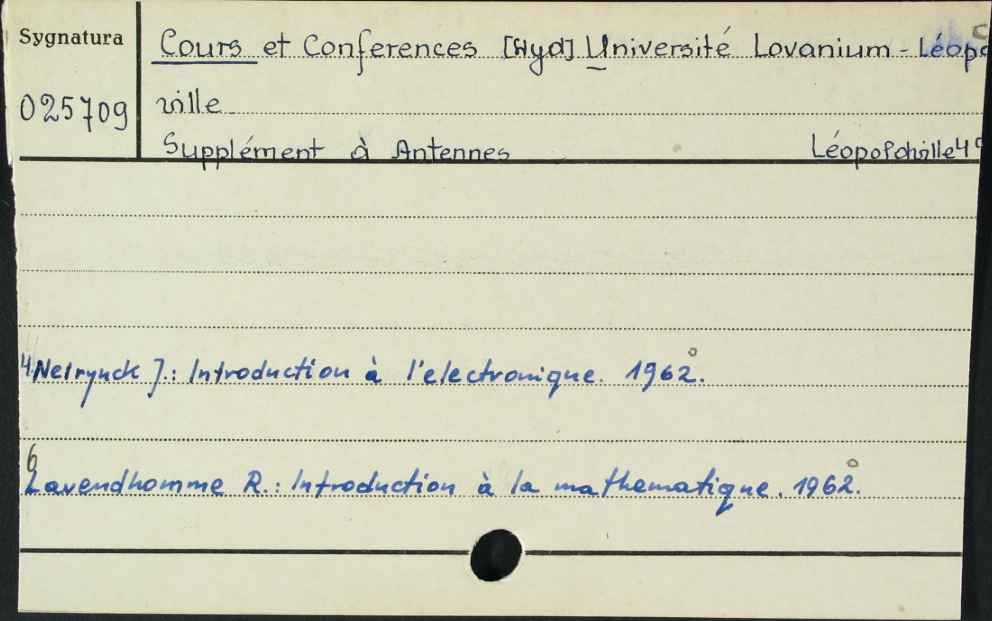 Sygnatura
Cours et Conferences [Wyd] Université Lovanium - Léopo
025709
ville
Supplément à Antennes Léopoldville 4°
4 Neirynck J.: Introduction à l'electronique. 1962.
6
Lavendhomme R.: Introduction à la mathematique. 1962.